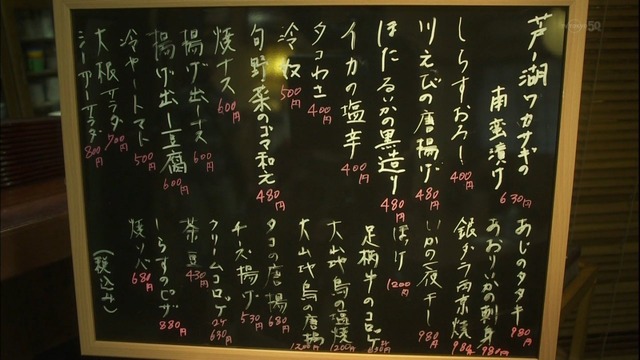 芦ノ湖ワカサギの
南蛮漬け
630円
しらすおろし
400円
川えびの唐揚げ
480円
ほたるいかの黒造り
480円
イカの塩辛
400円
タコわさ
400円
冷奴
500円
旬野菜のゴマ和え
480円
焼ナス
600円
揚げ出しナス
600円
揚げ出し豆腐
600円
冷やしトマト
500円
大根サラダ
700円
シーザーサラダ
800円
あじのタタキ
980円
あおりいかの刺身
980円
銀ダラ西京焼
980円
いかの一夜干し
980円
ほっけ
1200円
足柄牛のコロッケ
630円
大山地鳥の塩焼
1200円
大山地鳥の唐揚
1200円
タコの唐揚
680円
チーズ揚げ
530円
クリームコロッケ
630円
茶豆
430円
しらすのピザ
880円
焼ソバ
680円
(税込み)